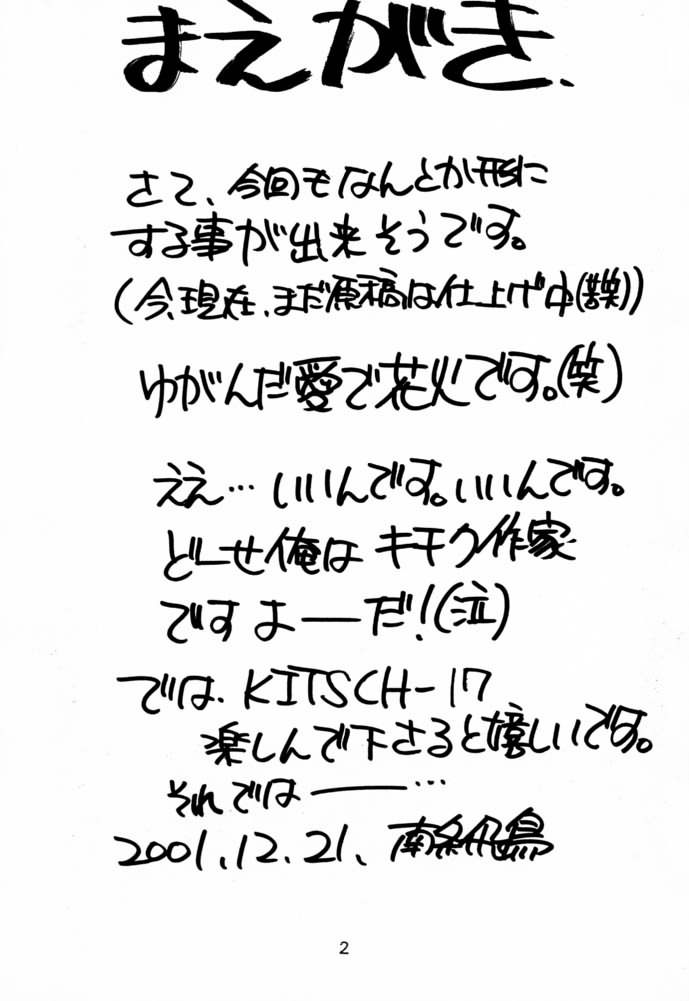 まえがき、
さて、今回もなんとか形に
する事が出来そうです。
(今、現在、まだ原稿は仕上げ中(苦笑))
ゆがんだ愛で花火です。(笑)
ええ…いいんです。いいんです。
どーせ俺はキモク作家
ですよーーだ!(泣)
では、KITSCH-17
楽しんで下さると嬉しいです。
それではーー…
2001.12.21、南条飛鳥
2